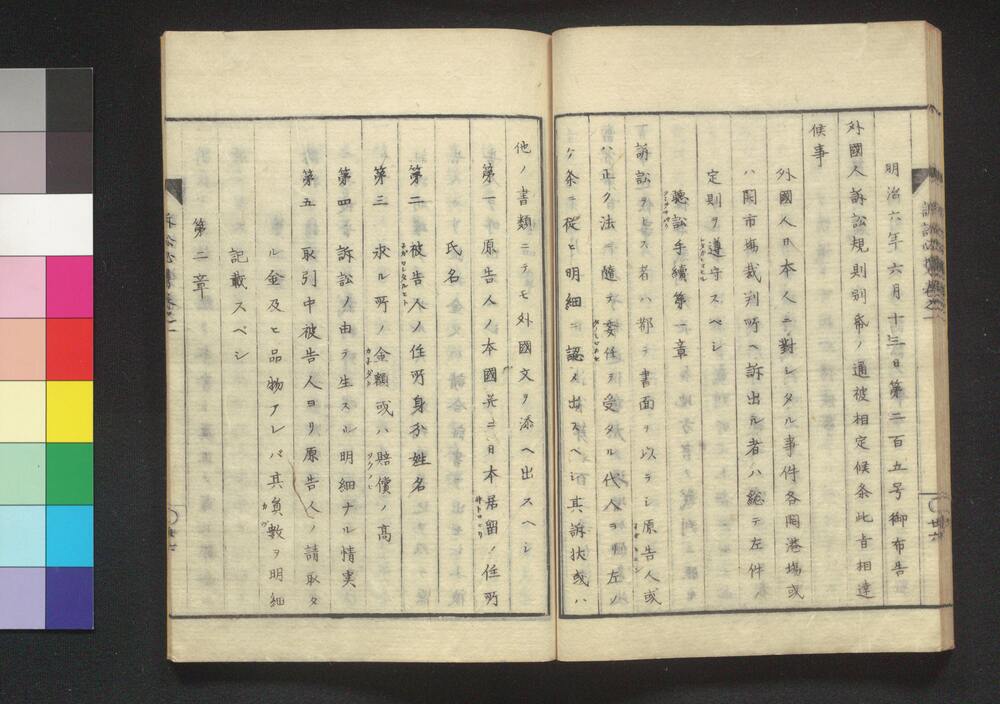 明治六年六月十三日第二百五号御布告
外國人訴訟規則別冊ノ通被相定候条此旨相達
候事
外國人日本人ニ對シタル事件各開港場或
ハ開市場裁判所ヘ訴出ル者ハ総テ左件ノ
定則ヲ遵守スベシ
聽訟手續第一章
訴訟ヲセントスル者ハ都テ書面ヲ以テシ原告人或
ハ正ク法ニ隨テ委任ヲ受タル代人ヨリ左ノ
ケ条ニ従ヒ明細ニ認メ出スヘシ其訴状或ハ
他ノ書類ニテモ外國文ヲ添ヘ出スヘシ
第一 原告人ノ本國并ニ日本居留ノ住所
氏名
第二 被告人ノ住所身分姓名
第三 求ル所ノ金額或ハ賠償ノ高
第四 訴訟ノ由テ生スル明細ナル情実
第五 取引中被告人ヨリ原告人ノ請取タ
ル金及ヒ品物アレバ其員數ヲ明細
記載スベシ
第二章